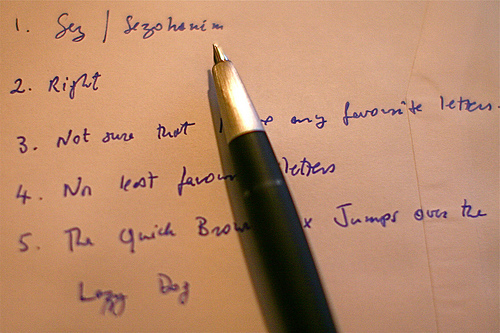 1. Sez / Sezohanim
2. Right
3. Not sure that any favourite letters.
4. No least favou letters
5. The Quick Brow x Jumps over the
Lazy Dog